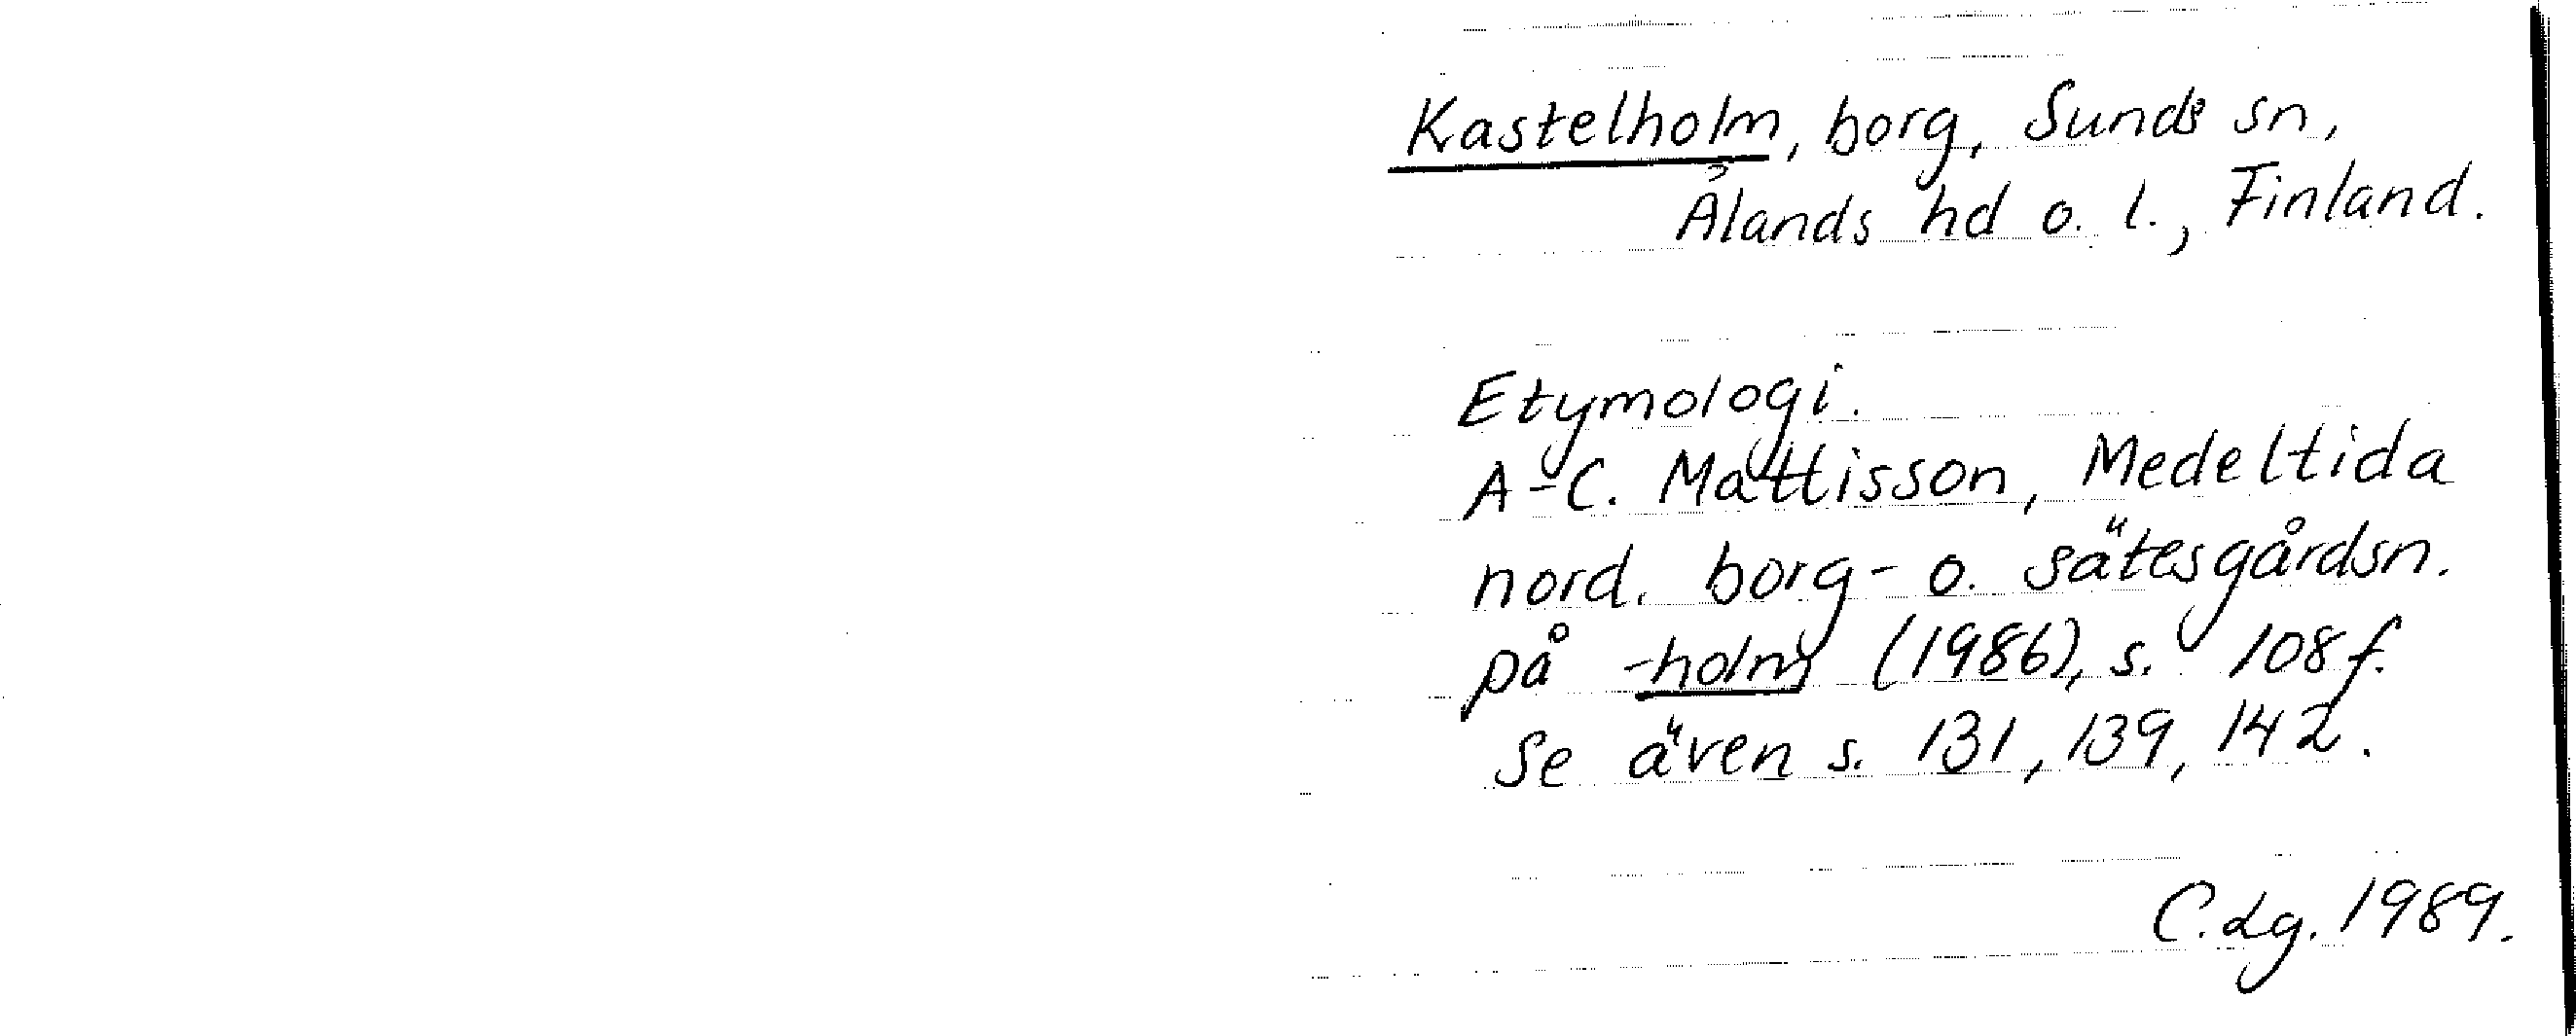 Kastelholm, borg, Sunds sn,
Ålands hd o. l., Finland.
Etymologi.
A-C. Mattisson, Medeltida
nord. borg- o. sätesgårdsn.
på -holm (1986), s. 108 f.
Se även s. 131, 139, 142.
C. Lg. 1989.